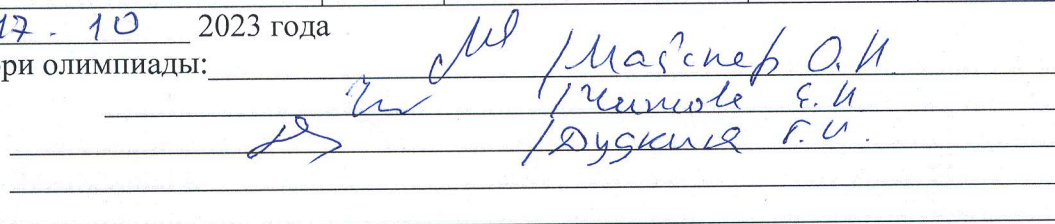 17.10 2023 года
ри олимпиады: /Майснер О.И.
/Чижова Е.И
/Дудкина Г.И.